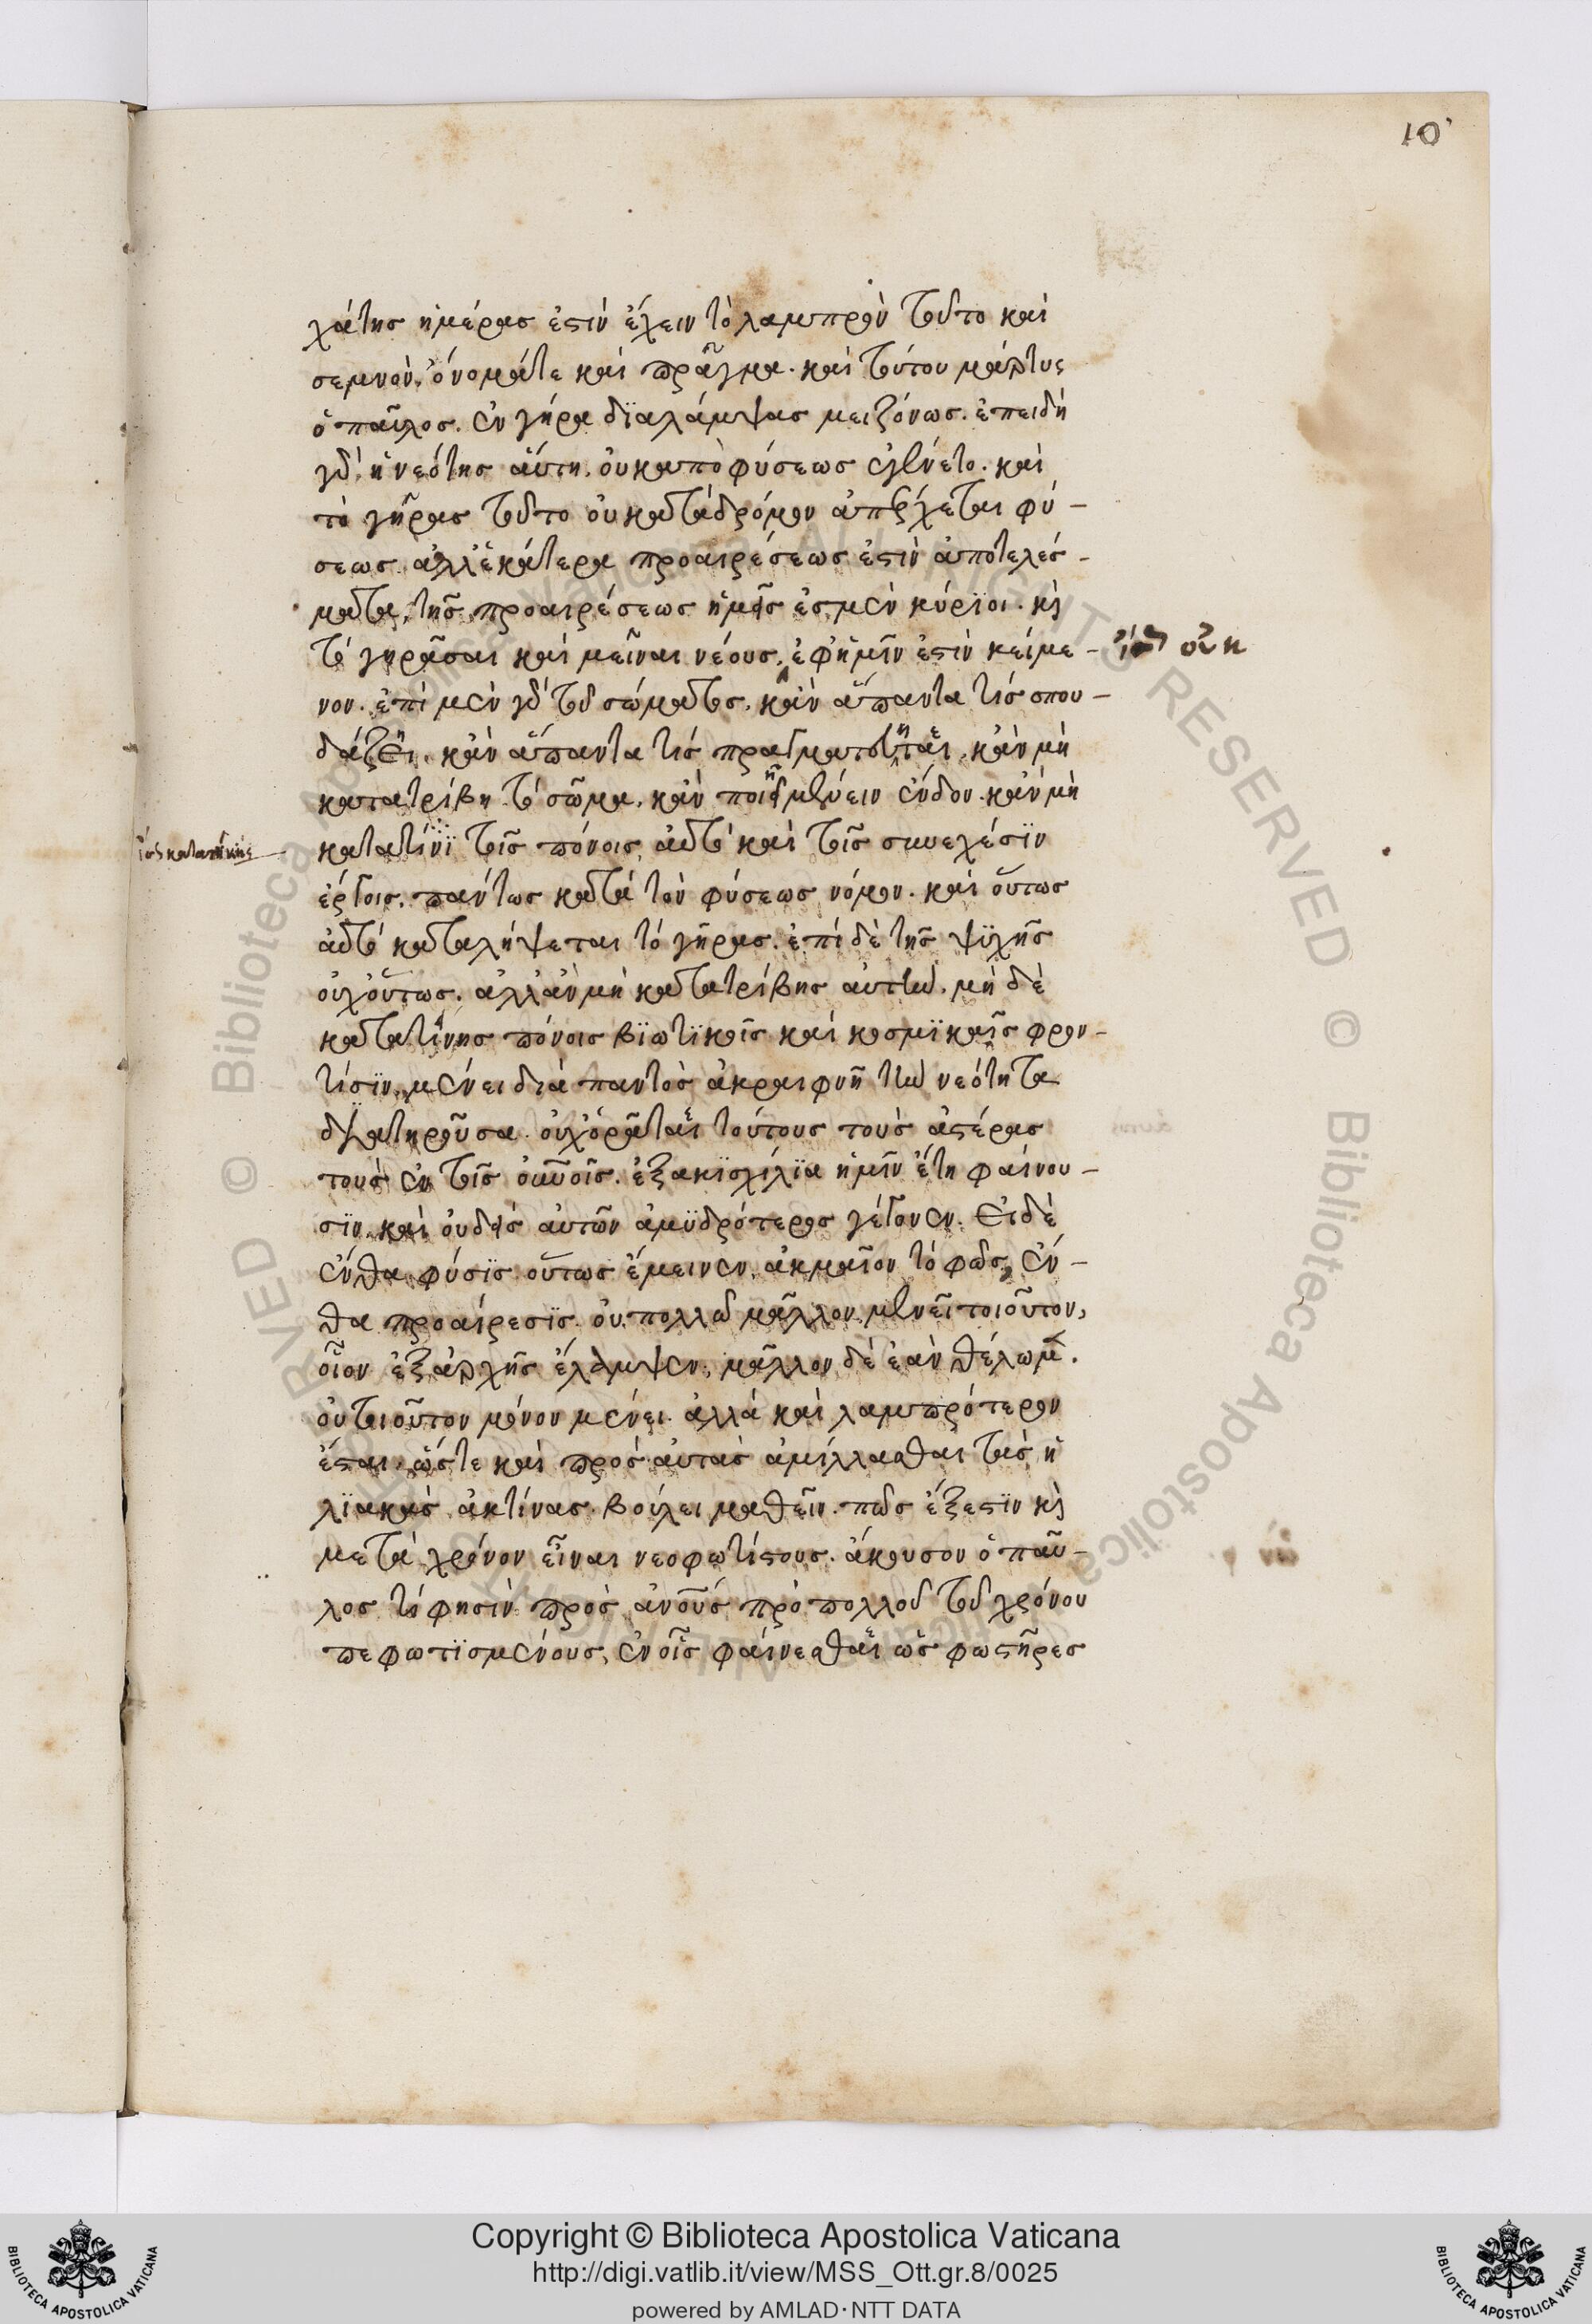 10
χάτης ἡμέρας ἐστὶν ἔχειν τὸ λαμπρὸν τοῦτο καὶ
σεμνὸν, ὄνομά τε καὶ πρᾶγμα. καὶ τούτου μάρτυς
ὁ παῦλος. ἐν γήρα διαλάμψας μειζόνως. ἐπειδὴ
γὰρ ἡ νεότης αὕτη. οὐκ ἀπὸ φύσεως ἐγένετο. καὶ
τὸ γῆρας τοῦτο οὐ κατὰ δρόμον ἀπέρχεται φύ-
σεως. ἀλλ' ἑκάτερα προαιρέσεως ἐστὶν ἀποτελέσ-
ματα, τῆς προαιρέσεως ἡμεῖς ἐσμὲν κύριοι. καὶ
τὸ γηρᾶσαι καὶ μεῖναι νέους, ἐφ' ἡμῖν ἐστὶν κείμε-
νον. ἐπὶ μὲν γὰρ τοῦ σώματος, κἂν ἅπαντα τίς σπου-
δάζει. κἂν ἅπαντα τίς πραγματεύηται, κἂν μὴ
κατατρίβη τὸ σῶμα, κἂν ποιῆ μένειν ἔνδον. κἂν μὴ
κατατίνϊ τοῖς πόνοις αὐτὸ καὶ τοῖς συνεχέσϊν
ἔργοις. πάντως κατὰ τὸν φύσεως νόμον. καὶ οὕτως
αὐτὸ καταλήψεται τὸ γῆρας. ἐπὶ δὲ τῆς ψϋχῆς
οὐχ οὕτως. ἀλλ' ἂν μὴ κατατρίβης αὐτὴν. μὴ δὲ
κατατίνης πόνοις βϊωτϊκοῖς καὶ κοσμϊκαῖς φρον-
τίσϊν, μένει διὰ παντὸς ἀκραιφνῆ τὴν νεότητα
διατηροῦσα. οὐχ ὁρᾶται τούτους τοὺς ἀστέρας
τοὺς ἐν τοῖς οὐνοῖς. ἑξακϊσχίλϊα ἡμῖν ἔτη φαίνου-
σϊν. καὶ οὐδεὶς αὐτῶν ἀμϋδρότερος γέγονεν. εἰ δὲ
ἔνθα φύσϊς οὕτως ἔμεινεν, ἀκμαῖον τὸ φῶς, ἔν-
θα προαίρεσϊς. οὐ πολλῶ μᾶλλον μενεῖ τοιοῦτον,
οἷον ἐξ ἀρχῆς ἔλαμψεν, μᾶλλον δὲ ἐὰν θέλωμεν.
οὐ τοιοῦτον μόνον μένει. ἀλλὰ καὶ λαμπρότερον
ἔσται. ὥστε καὶ πρὸς αὐτὰς ἀμίλλασθαι τὰς ἡ
λϊακὰς ἀκτίνας. βούλει μαθεῖν. πῶς ἔξεστϊν καὶ
μετὰ χρόνον εἶναι νεοφωτίστους. ἄκουσον ὁ παῦ-
λος τί φησὶν πρὸς ἀνοὺς πρὸ πολλοῦ τοῦ χρόνου
πεφωτϊσμένους, ἐν οἷς φαίνεσθαι ὡς φωστῆρες
Copyright © Biblioteca Apostolica Vaticana
http://digi.vatlib.it/view/MSS_Ott.gr.8/0025
powered by AMLAD·NTT DATA